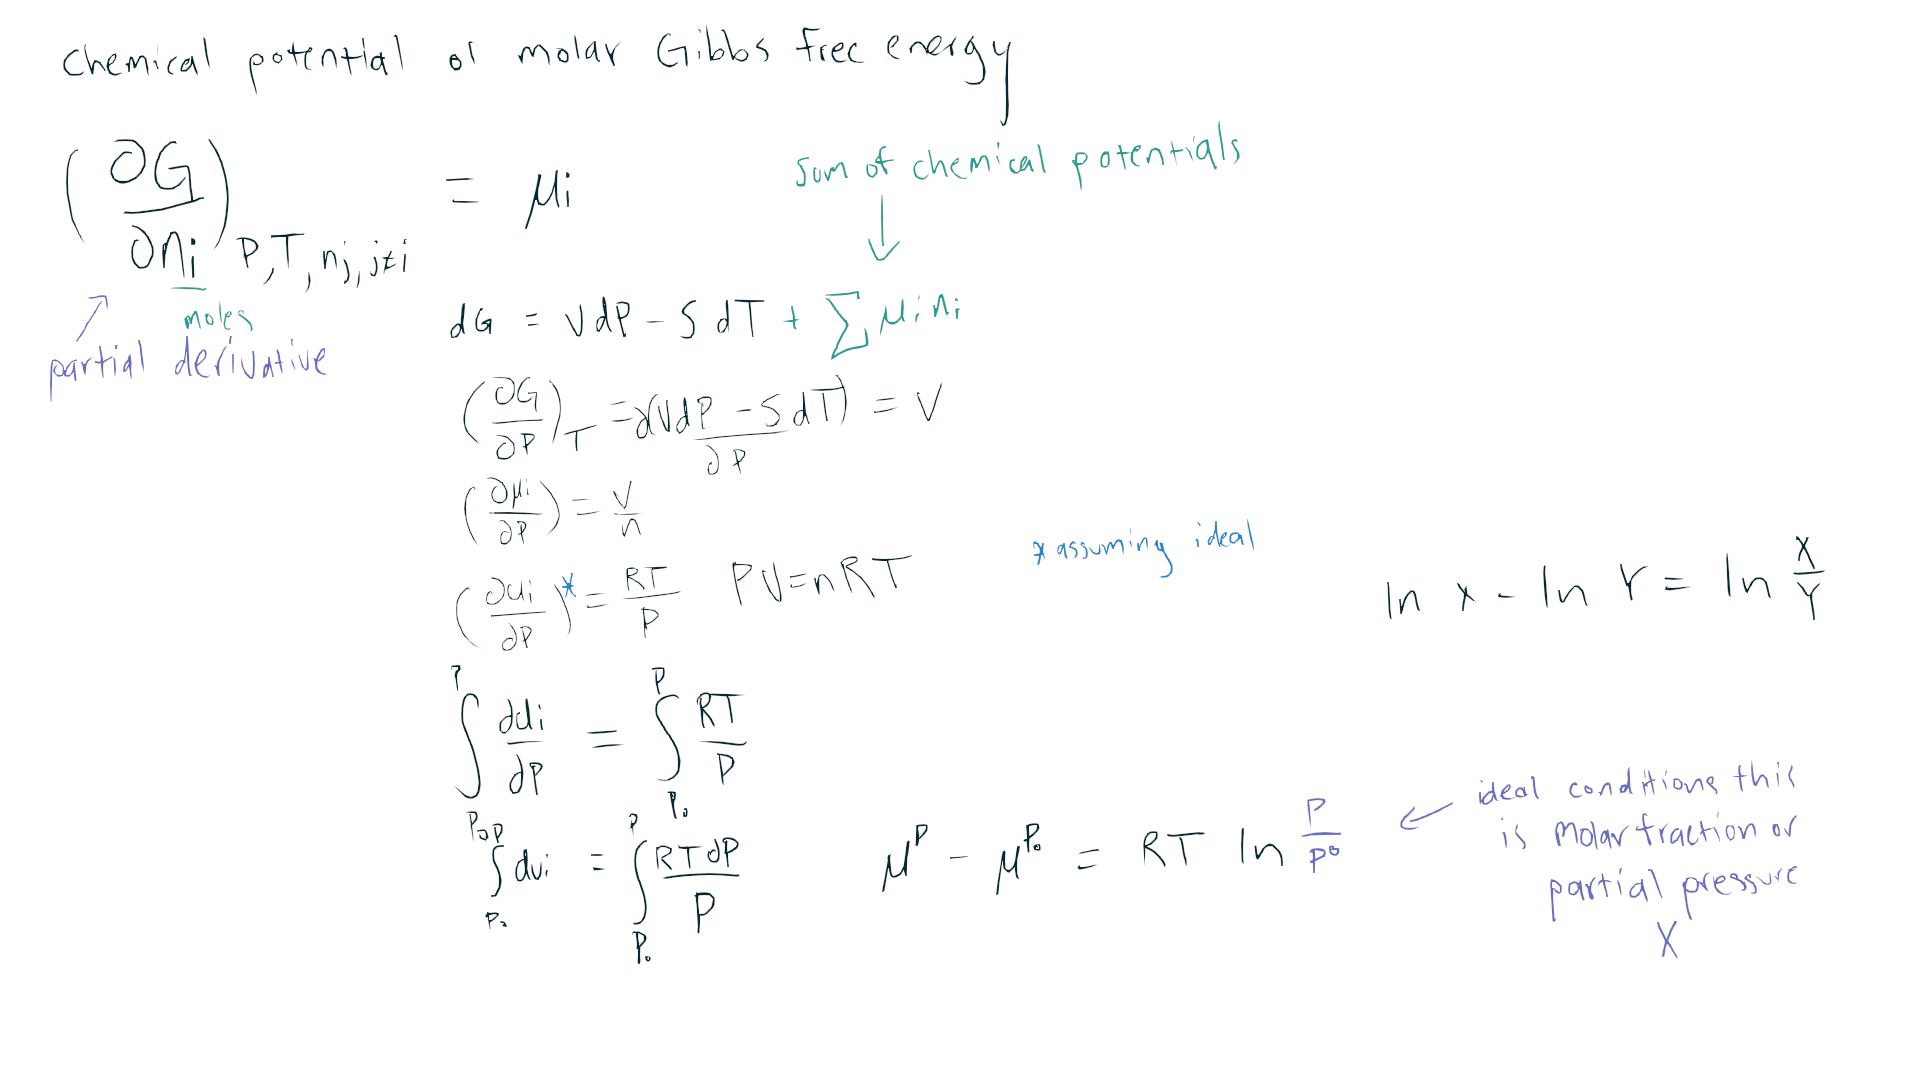 Chemical potential or molar Gibbs free energy
(∂G/∂ni)P,T,nj,j≠i = μi
moles
partial derivative
Sum of chemical potentials
dG = VdP - SdT + Σ μini
(∂G/∂P)T = ∂(VdP - SdT)/∂P = V
(∂μi/∂P) = V/n
(∂ui/∂P)* = RT/P PV=nRT
* assuming ideal
ln x - ln Y = ln X/Y
∫ ∂ui/∂P = ∫ RT/P
P P
P0 P0
∫ dui = ∫ RTdP/P
P P
P0 P0
μ^P - μ^P0 = RT ln P/P0
ideal conditions this
is molar fraction or
partial pressure
X